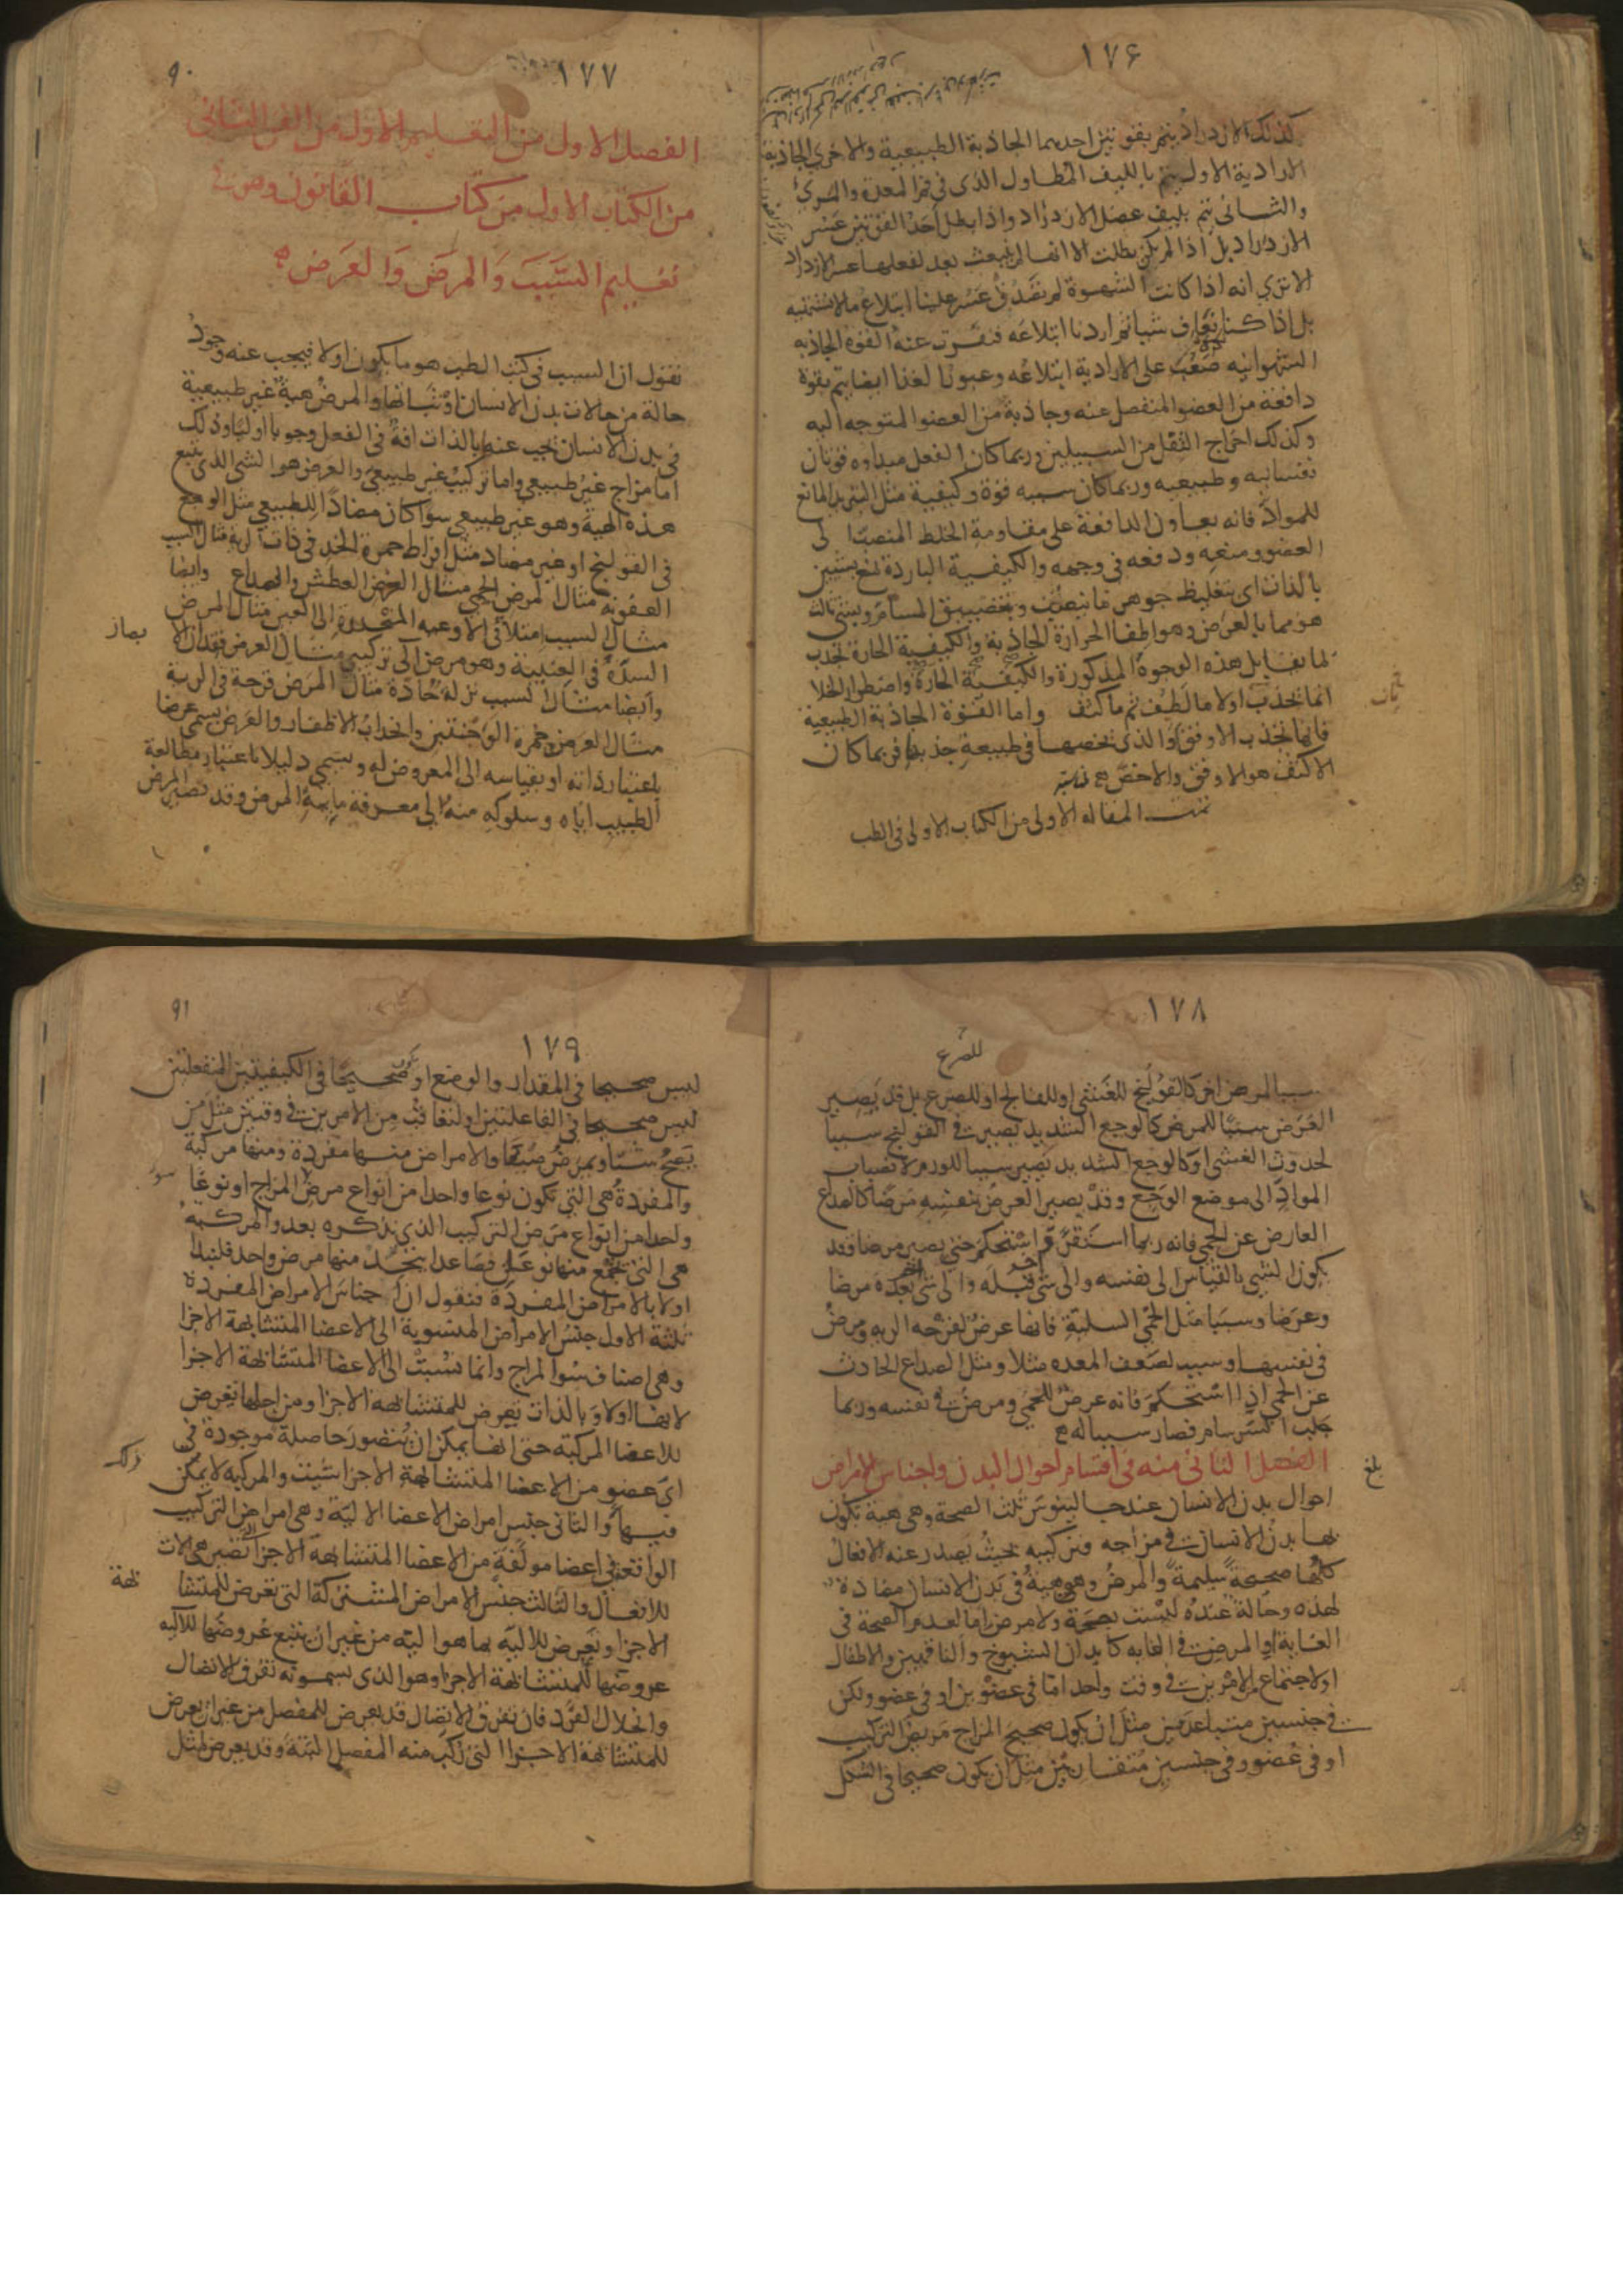 ١٧۶
كذلك الازدراد يتم بقوتين احديهما الجاذبة الطبيعية والاخرى الجاذبة
الارادية الاول يتم بالليف المطاول الذى فى فم المعدة والمرى
والثانى يتم بليف عضل الازدراد واذا بطل احد القوتين عسر
الازدراد بل اذا لم يكن بطلت الا انها لم تنبعث بعد لفعلها عسر الازدراد
الا ترى انه اذا كانت الشهوة لم تصدق عسر علينا ابتلاع ما لا نشتهيه
بل اذا كنا نعاف شيا ثم اردنا ابتلاعه فنفرت عنه القوة الجاذبه
الشهوانيه صعب على الارادية ابتلاعه وعبور الغذا ايضا يتم بقوة
دافعة من العضو المنفصل عنه وجاذبة من العضو المتوجه اليه
وكذلك اخراج الثفل من السبيلين وربما كان الفعل مبداوه قوتان
نفسانيه وطبيعيه وربما كان سببه قوة وكيفية مثل التبريد المانع
للمواد فانه يعاون الدافعة على مقاومة الخلط المنصب الى
العضو ومنعه ودفعه فى وجهه والكيفية الباردة تمنع بشيين
بالذات اى بتغليظ جوهر ما ينصب وبتضييق المسام وبشى ثالث
هو مما بالعرض وهو اطفا الحرارة الجاذبة والكيفية الحارة تجذب
لما يقابل هذه الوجوه المذكورة والكيفية الحارة واضطرار الخلا
انما يجذب اولا ما لطف ثم ما كثف واما القوة الجاذبة الطبيعية
فانها تجذب الاوفق او الذى يخصها فى طبيعة جذبها فربما كان
الاكثف هو الاوفق والاخص
تمت المقاله الاولى من الكتاب الاولى فى الطب
١٧٧
٩٠
الفصل الاول من التعليم الاول من الفن الثانى
من الكتاب الاول من كتاب القانون وهو فى
تعليم السبب والمرض والعرض
نقول ان السبب فى كتب الطب هو ما يكون اولا فيجب عنه وجود
حالة من حالات بدن الانسان او ثباتها والمرض هية غير طبيعية
فى بدن الانسان يجب عنها بالذات افة فى الفعل وجوبا اوليا وذلك
اما مزاج غير طبيعى واما تركيب غير طبيعى والعرض هو الشى الذى يتبع
هذه الهية وهو غير طبيعى سوا كان مضادا للطبيعى مثل الوجع
فى القولنج او غير مضاد مثل افراط حمرة الخد فى ذات الرية مثال السبب
العفونة مثال المرض الحمى مثال العرض العطش والصداع وايضا
مثال السبب امتلا فى الاوعيه المنحدرة الى العين مثال المرض
السدة فى العنبية وهو مرض الى تركيبى مثال العرض فقدان الابصار
وايضا مثال السبب نزلة حادة مثال المرض قرحة فى الرية
مثال العرض حمرة الوجنتين وانجذاب الاظفار والعرض يسمى عرضا
باعتبار ذاته او بقياسه الى المعروض له ويسمى دليلا باعتبار مطالعة
الطبيب اياه وسلوكه منه الى معرفة ماهية المرض وقد يصير المرض
١٧٨
للصرع
سببا لمرض اخر كالقولنج للغشى او للفالج او للصرع بل قد يصير
العرض سببا للمرض كالوجع الشديد يصير فى القولنج سببا
لحدوث الغشى او كالوجع الشديد يصير سببا للورم لانصباب
المواد الى موضع الوجع وقد يصير العرض بنفسه مرضا كالصداع
العارض عن الحمى فانه ربما استقر واستحكم حتى يصير مرضا وقد
يكون الشى بالقياس الى نفسه والى شى قبله والى شى بعده مرضا
وعرضا وسببا مثل الحمى السلية فانها عرض لقرحه الريه ومرض
فى نفسها وسبب لضعف المعده مثلا ومثل الصداع الحادث
عن الحمى اذا استحكم فانه عرض للحمى ومرض فى نفسه وربما
جلب السرسام فصار سببا له
الفصل الثانى منه فى اقسام احوال البدن واجناس الامراض
بلغ
احوال بدن الانسان عند جالينوس ثلث الصحة وهى هية يكون
بها بدن الانسان فى مزاجه وتركيبه بحيث يصدر عنه الافعال
كلها صحيحة سليمة والمرض وهو هية فى بدن الانسان مضادة
لهذه وحالة عنده ليست بصحة ولا مرض اما لعدم الصحة فى
الغاية او المرض فى الغايه كابدان الشيوخ والناقهين والاطفال
او لاجتماع الامرين فى وقت واحد اما فى عضوين او فى عضو ولكن
فى جنسين متباعدين مثل ان يكون صحيح المزاج مريض التركيب
او فى عضو وفى جنسين متقاربين مثل ان يكون صحيحا فى الشكل
١٧٩
٩١
ليس صحيحا فى المقدار والوضع او يكون صحيحا فى الكيفيتين المنفعلتين
ليس صحيحا فى الفاعلتين او لتعاقب من الامرين فى وقتين مثل من
يصح شتا ويمرض صيفا والامراض منها مفردة ومنها مركبة
والمفردة هى التى تكون نوعا واحدا من انواع مرض المزاج او نوعا
واحدا من انواع مرض التركيب الذى نذكره بعد والمركبة
هى التى تجتمع منها نوعان فصاعدا يتحد منها مرض واحد فلنبدا
اولا بالامراض المفردة فنقول ان اجناس الامراض المفردة
ثلثة الاول جنس الامراض المنسوبة الى الاعضا المتشابهة الاجزا
وهى اصناف سو المزاج وانما نسبت الى الاعضا المتشابهة الاجزا
لانها اولا وبالذات تعرض للمتشابهه الاجزا ومن اجلها تعرض
للاعضا المركبه حتى انها يمكن ان تتصور حاصلة موجودة فى
اى عضو من الاعضا المتشابهة الاجزا شيت والمركبه لا يمكن
فيها والثانى جنس امراض الاعضا الالية وهى امراض التركيب
الواقعة فى اعضا مولفة من الاعضا المتشابهه الاجزا التى هى الات
للافعال والثالث جنس الامراض المشتركة التى تعرض للمتشابهة
الاجزا وتعرض للاليه بما هو اليه من غير ان يتبع عروضها للاليه
عروضها للمتشابهة الاجزا وهو الذى يسمونه تفرق الاتصال
وانحلال الفرد فان تفرق الاتصال قد يعرض للمفصل من غير ان يعرض
للمتشابهة الاجزا التى ركب منه المفصل البتة وقد يعرض لمثل